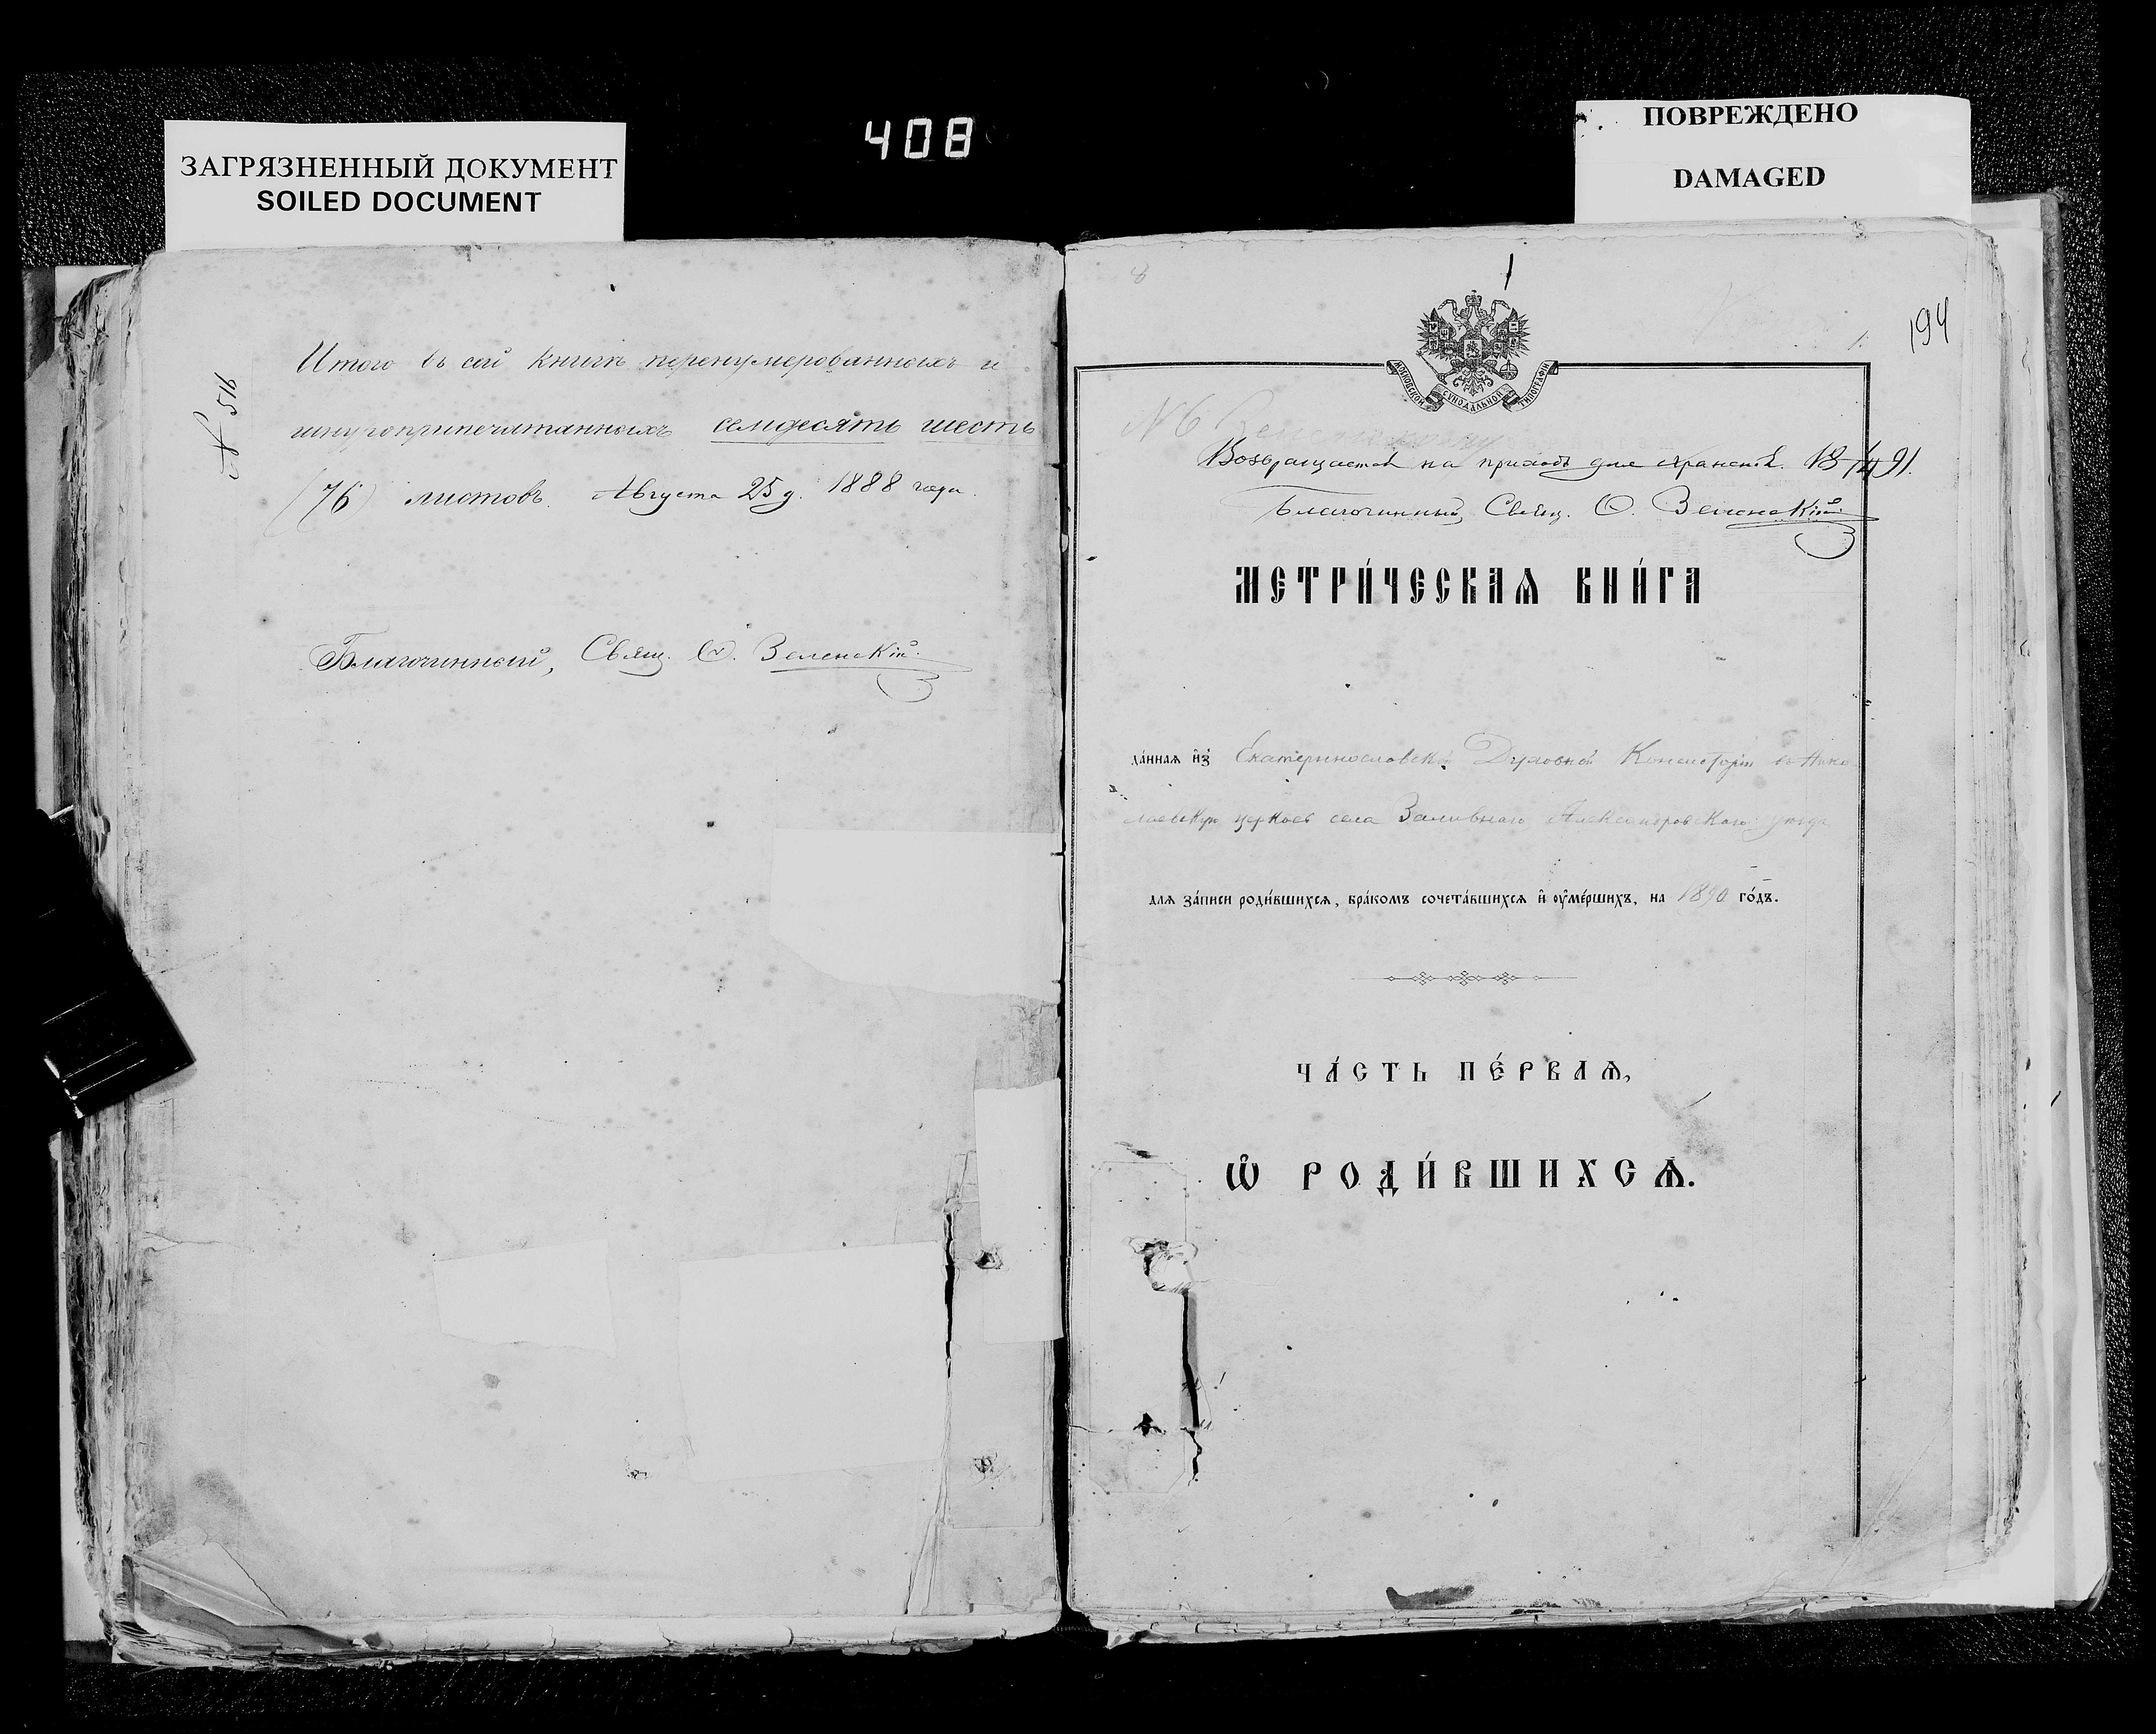 408
ЗАГРЯЗНЕННЫЙ ДОКУМЕНТ
SOILED DOCUMENT
ПОВРЕЖДЕНО
DAMAGED
№ 516
Итого въ сей книгѣ перенумерованныхъ и
шнуроприпечатанныхъ семдесятъ шесть
(76) листовъ. Августа 25 д. 1888 года.
Благочинный, Свящ. Ѳ. Зеленскій
8
1
1.
194
МОСКОВСКОЙ СѴНОДАЛЬНОЙ ТИПОГРАФІИ
№ 6
Возвращается на приходъ для храненія. 18 91.
Благочинный, Свящ. Ѳ. Зеленскій
МЕТРИ́ЧЕСКАѦ КНИ́ГА
да́ннаѧ и҆з̾ Екатеринославской Духовной Консисторіи въ Нико
лаевскую церковь села Заливнаго Александровскаго уѣзда
длѧ за́писи роди́вшихсѧ, бра́комъ сочета́вшихсѧ и҆ ᲂу҆ме́ршихъ, на 1890 го́дъ.
ЧА́СТЬ ПЕ́РВАѦ,
Ѽ РОДИ́ВШИХСѦ.